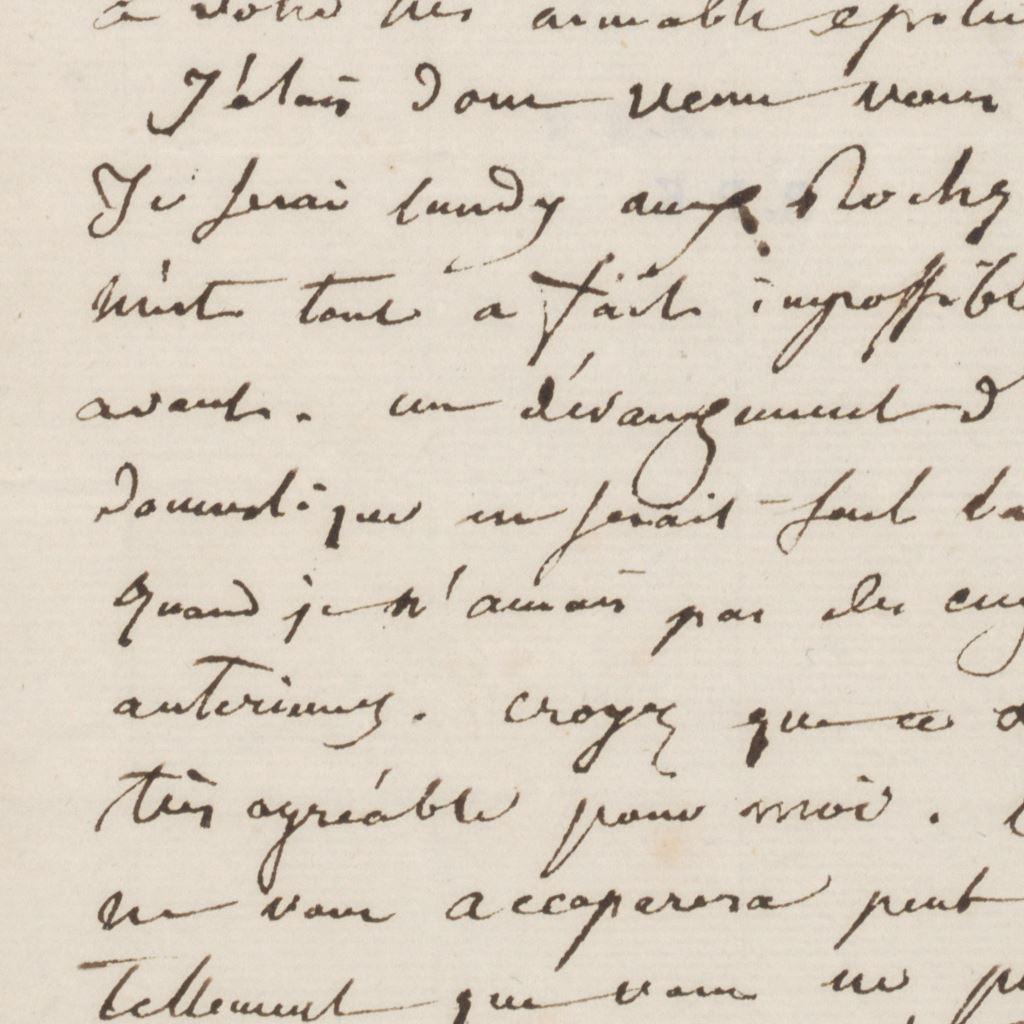 à votre très aimable epitre
J'étais donc venu vous
Je serai lundy aux Roches
m'est tout a fait impossible
avant. un dérangement d
domestique me serait seul
Quand je n'aurais pas des eng
anterieurs. croyez que ce
très agréable pour moi.
ne vous accaparera peut
tellement que vous ne